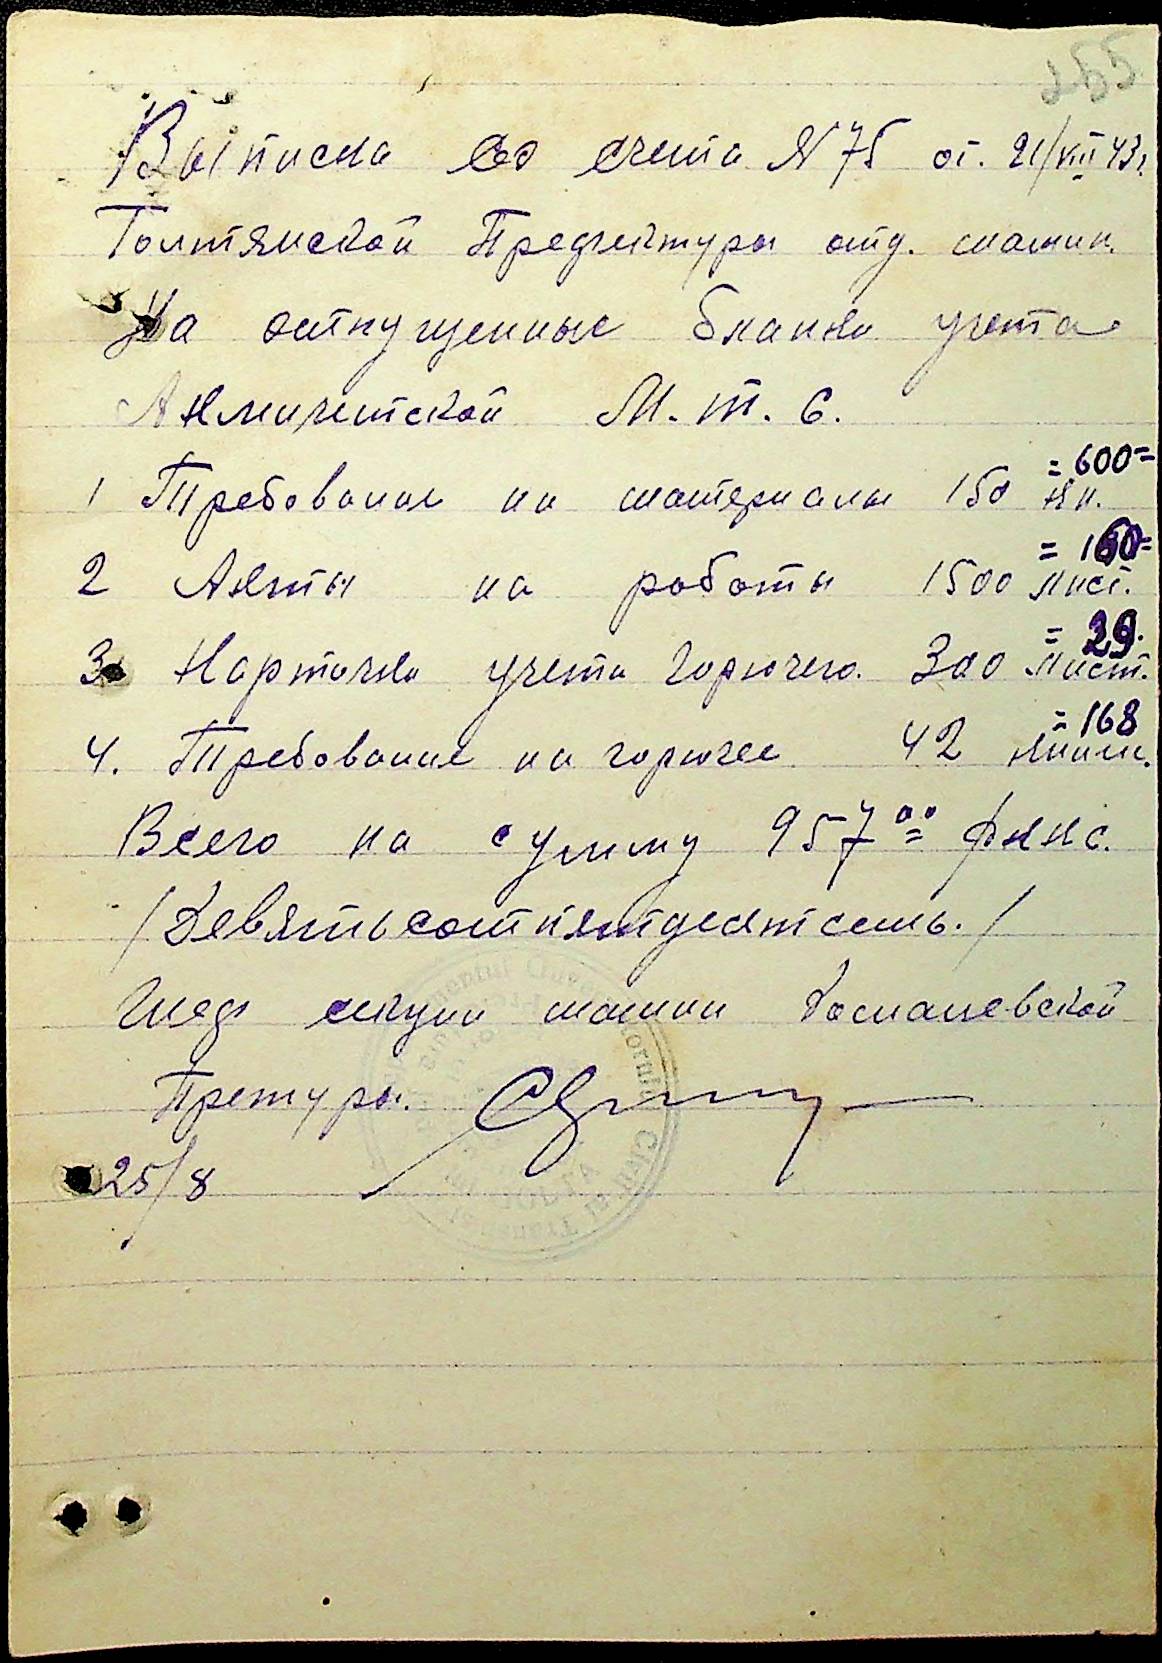 255
Выписка со счета N 75 от. 21/VIII 43г.
Голтянской Предфектуры отд. машин.
На отпущенные бланки учета
Акмичетской М. т. с.
= 600 =
1 Требование на материалы 150 кн.
= 160 =
2 Акты на работы 1500 лист.
= 29.
3. Карточки учета горючего. 300 лист.
= 168
4. Требование на горючее 42 книж.
Всего на сумму 957 00 = РККС.
/Девятьсотпятдесятсемь./
Шеф секции машин Доманевской
Претуры.
25/8